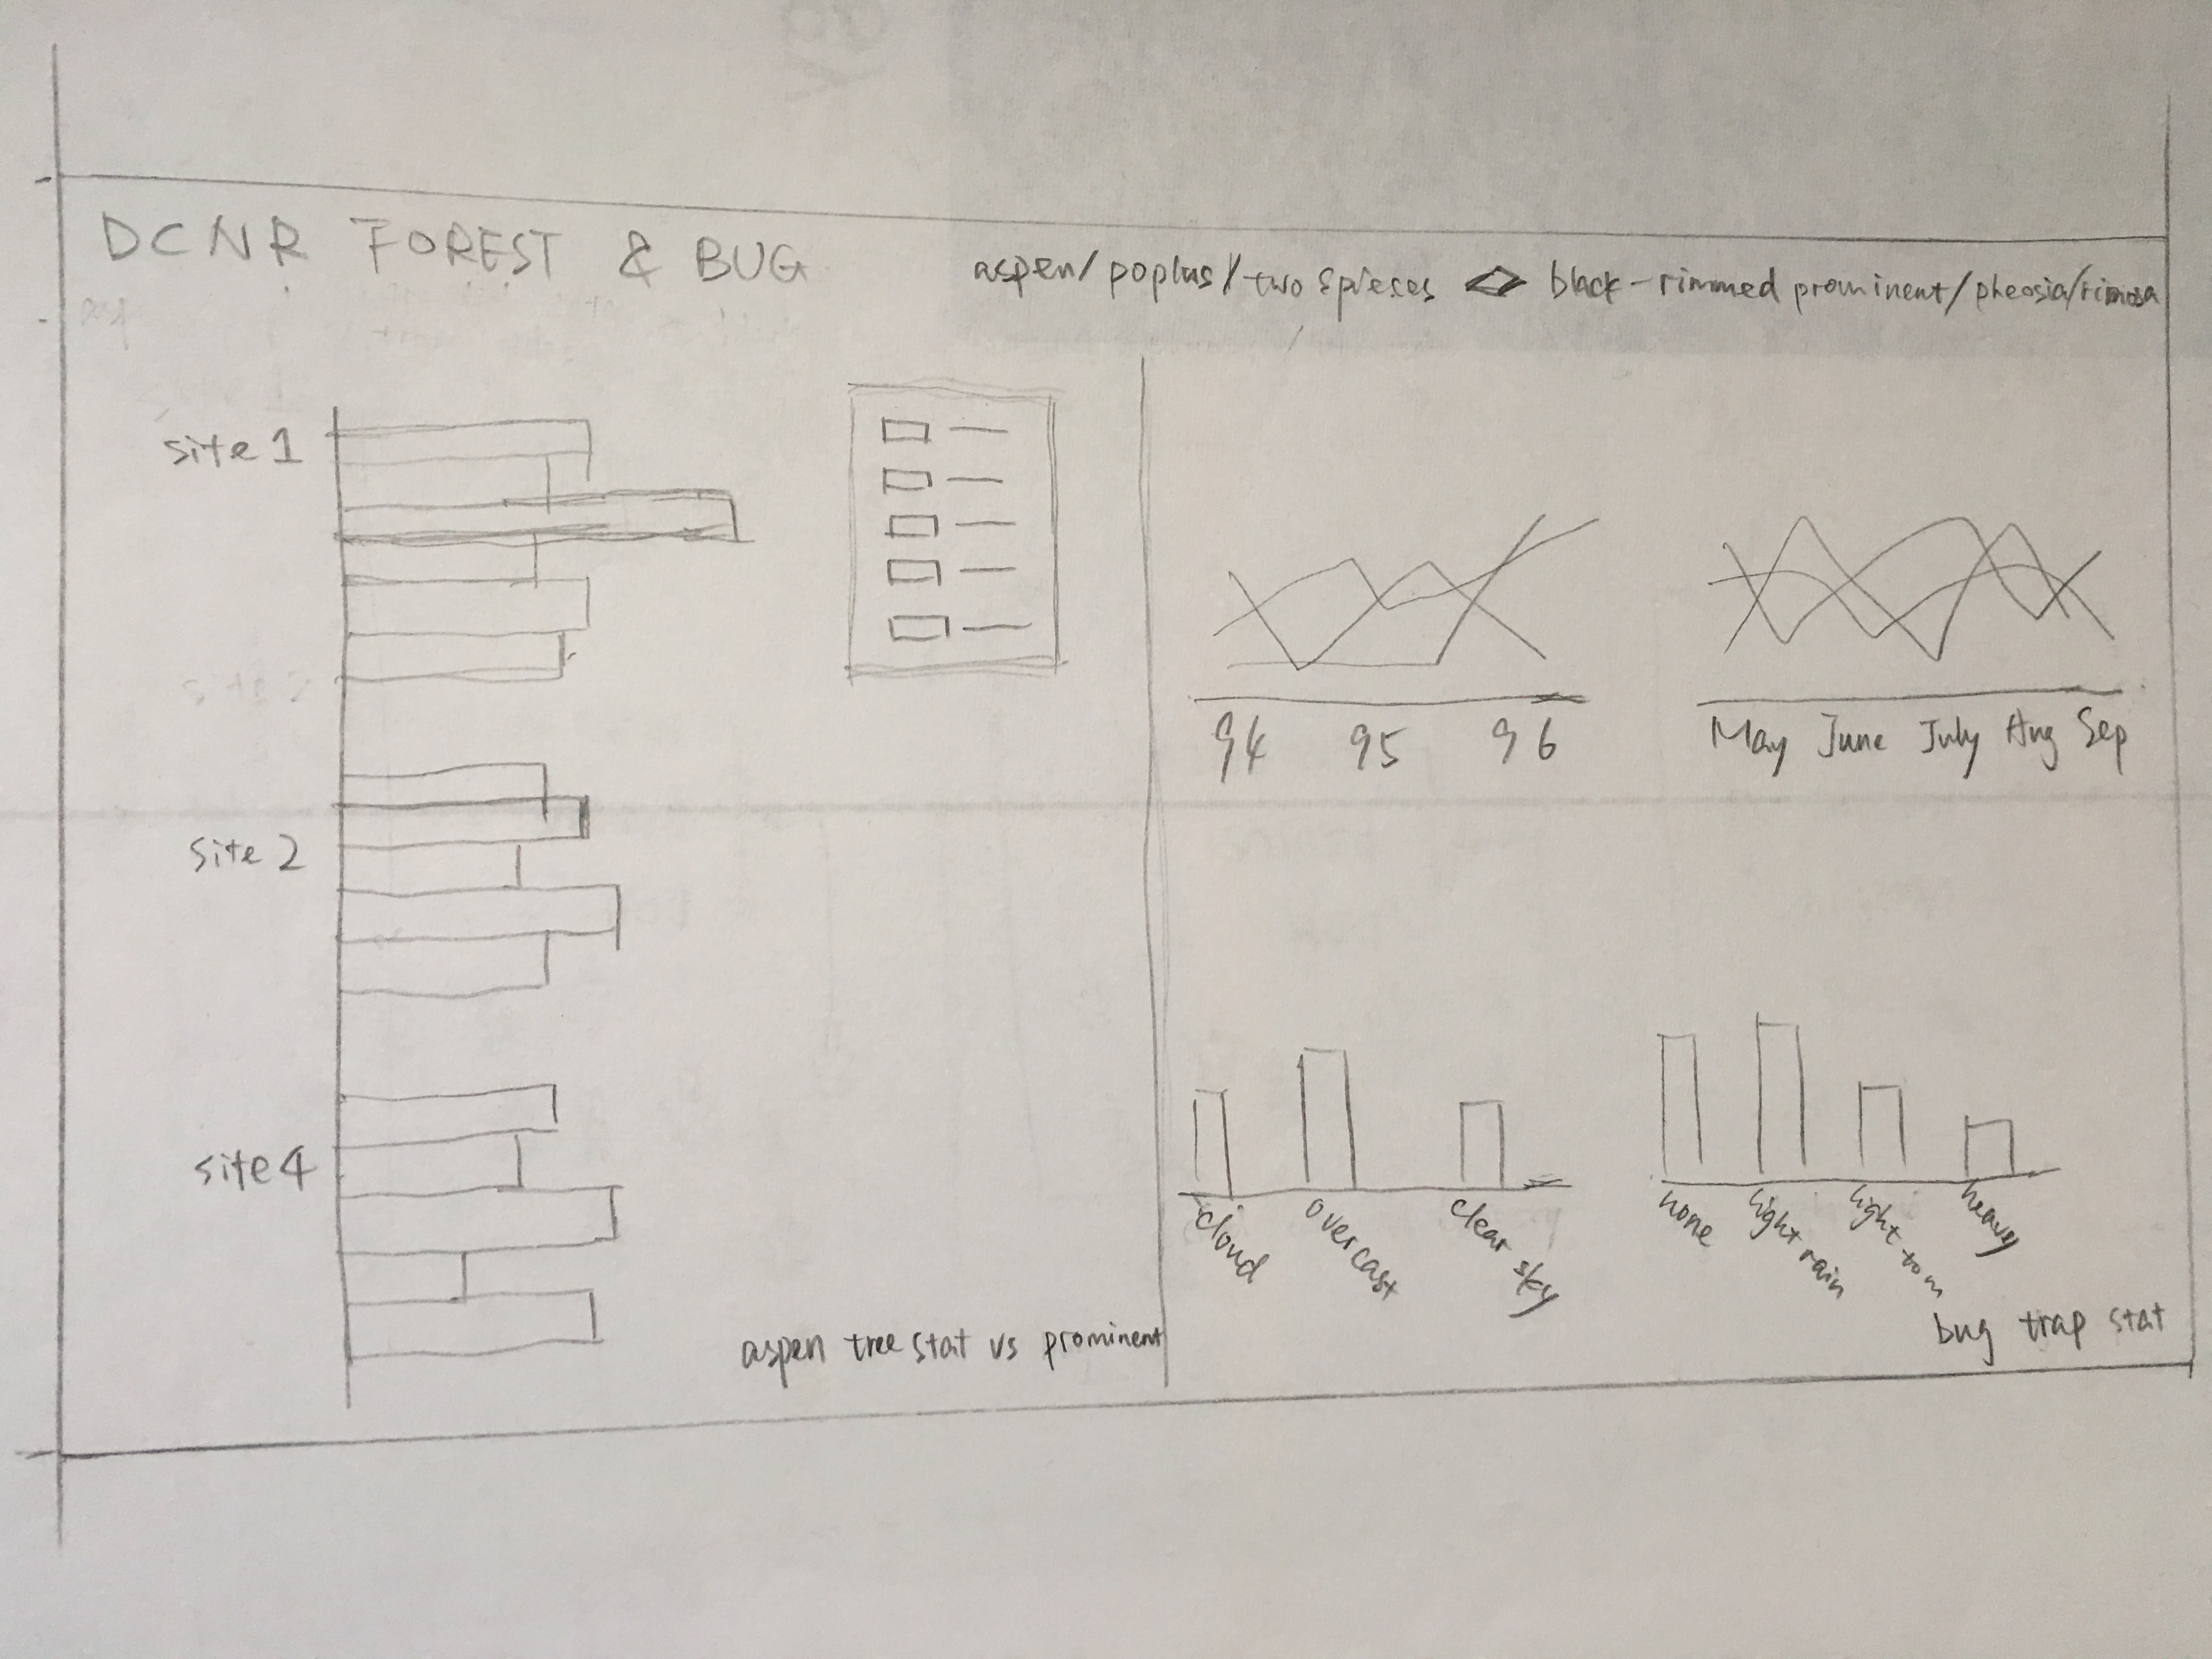 DCNR FOREST & BUG
aspen/poplus/two spieses <> black-rimmed prominent/pheosia/rimosa
site 1
site 2
site 4
aspen tree stat vs prominent
94 95 96
May June July Aug Sep
cloud overcast clear sky
none light rain light to m heavy
bug trap stat